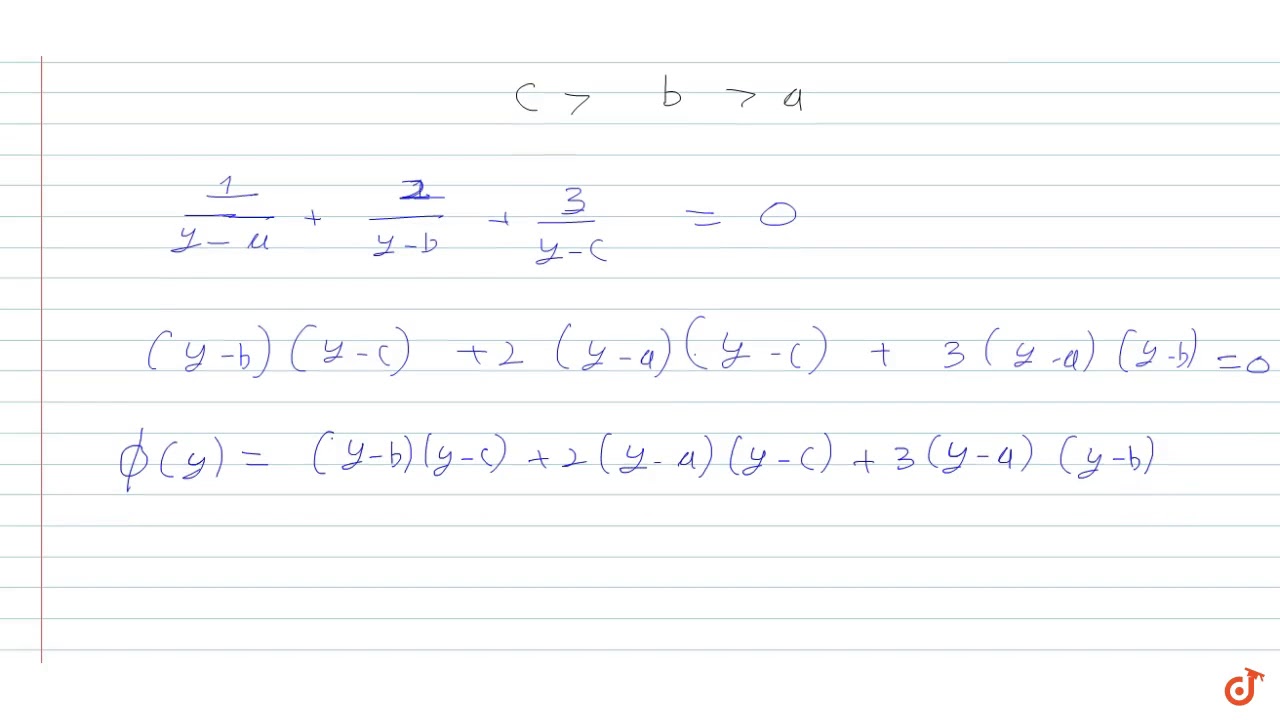 c > b > a
1/(y-a) + 2/(y-b) + 3/(y-c) = 0
(y-b)(y-c) +2 (y-a)(y-c) + 3(y-a)(y-b) =0
ϕ(y) = (y-b)(y-c) +2(y-a)(y-c) +3(y-a)(y-b)